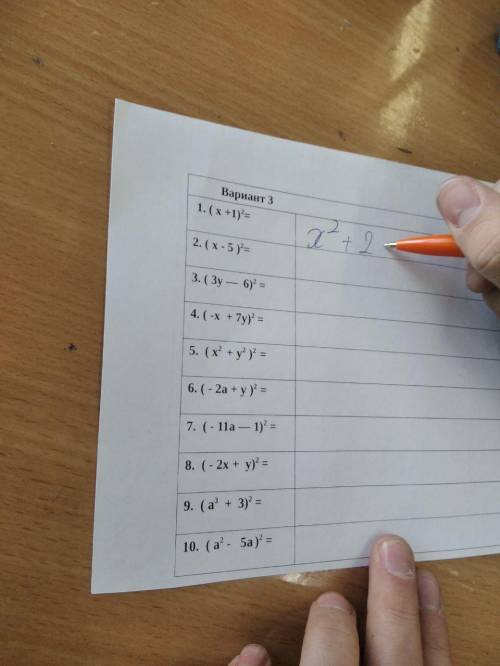 Вариант 3
1. ( x +1)²= x² + 2
2. ( x - 5 )²=
3. ( 3y — 6)² =
4. ( -x + 7y)² =
5. ( x² + y² )² =
6. ( - 2a + y )² =
7. ( - 11a — 1)² =
8. ( - 2x + y)² =
9. ( a³ + 3)² =
10. ( a² - 5a )² =